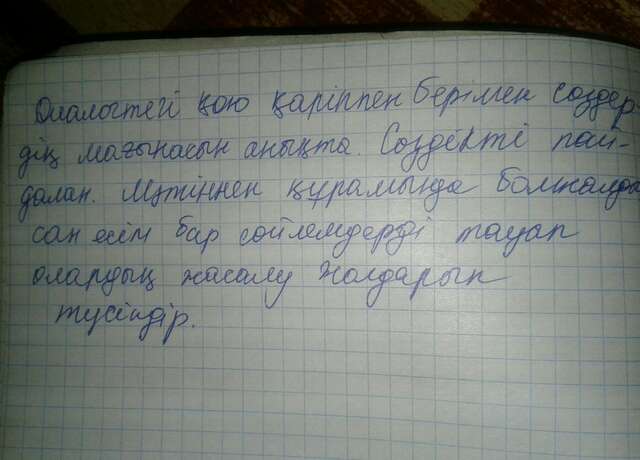 Диалогтегі қою қаріппен берілмен сөздер
дің мағынасын анықта. Сөздікті пай-
далан. Мәтіннен құрамында болжалды
сан есім бар сөйлемдерді тауап
олардың жасалу жолдарын
түсіндір.